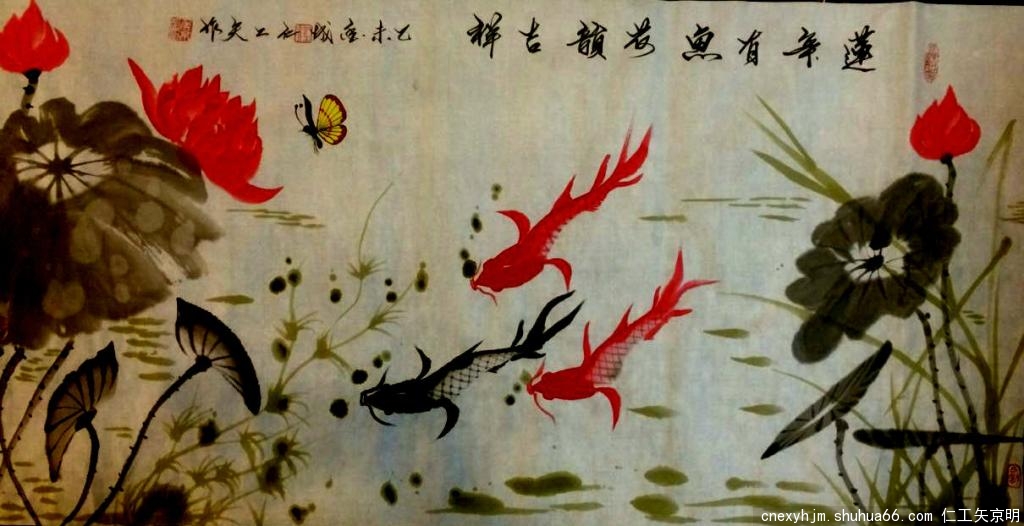 蓮年有魚荷韻吉祥
乙未 仁工矢作
cnexyhjm.shuhua66.com 仁工矢京明